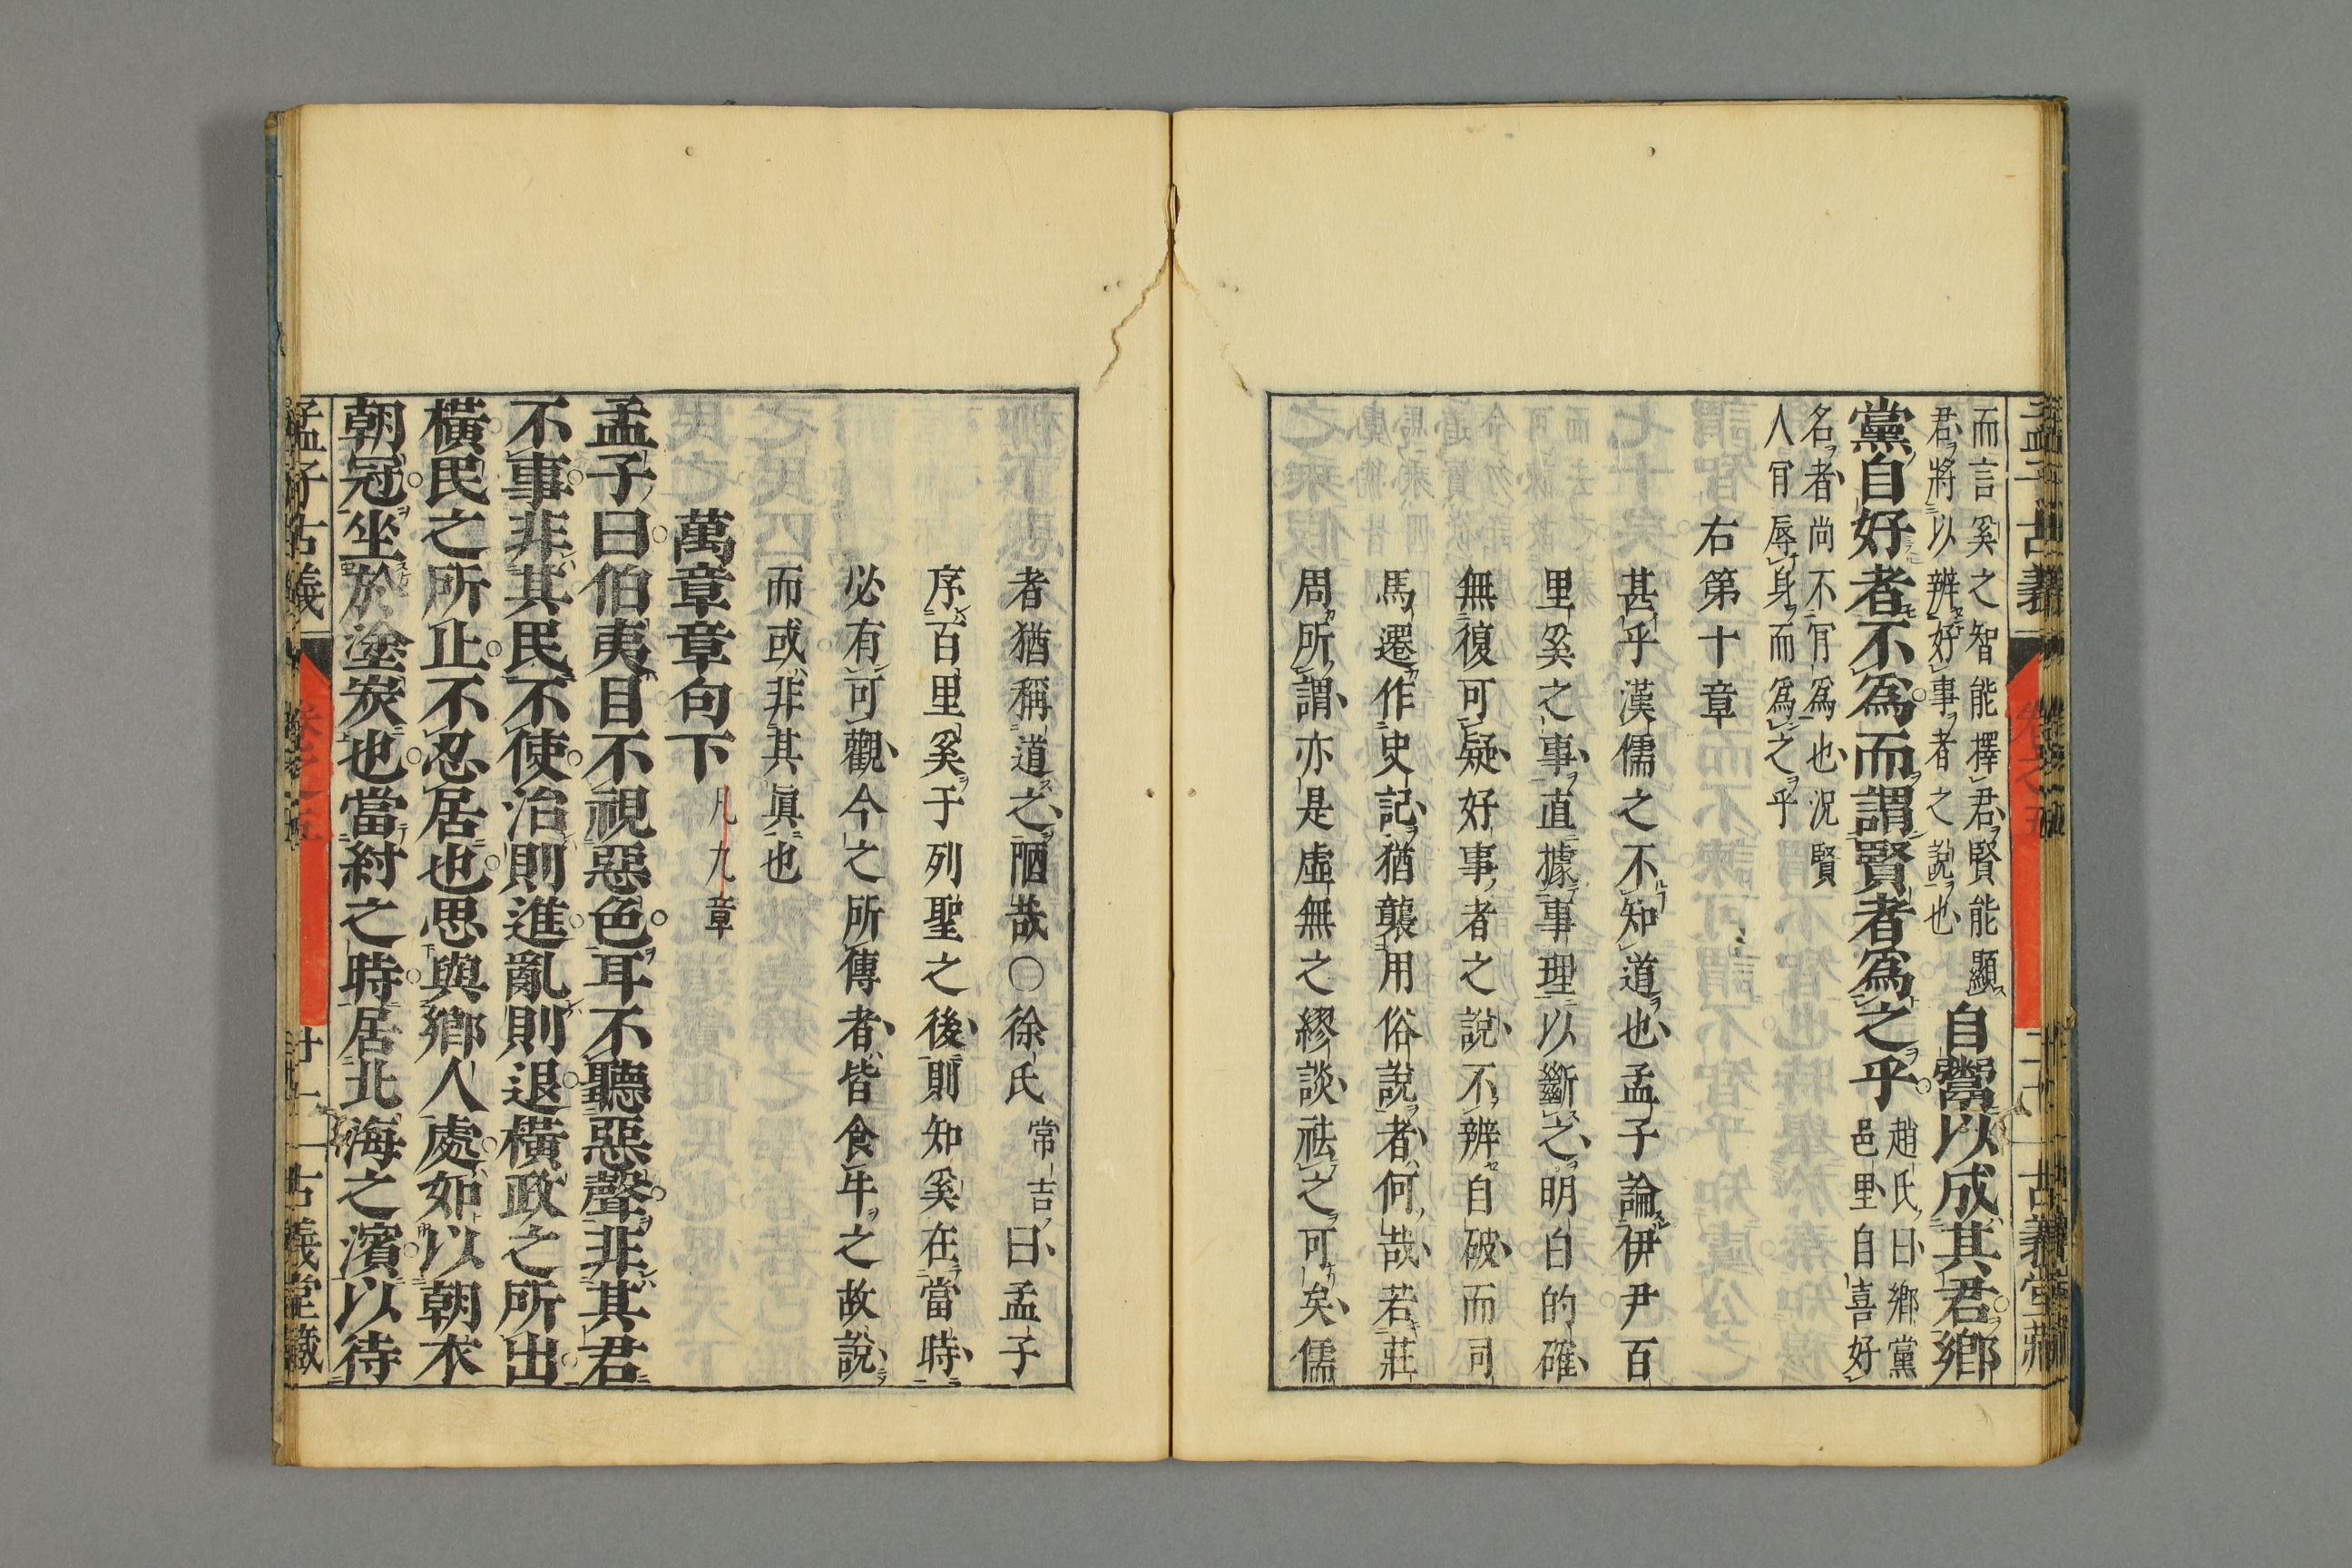 而言奚之智能擇君賢能顯
君將以辨好事者之説也
自鬻以成其君鄉
黨自好者不爲而謂賢者爲之乎
趙氏曰鄉黨
邑里自喜好
名者尚不肎爲也況賢
人肎辱身而爲之乎
右第十章
甚乎漢儒之不知道也孟子論伊尹百
里奚之事直據事理以斷之明白的確
無復可疑好事者之說不辨自破而司
馬遷作史記猶襲用俗說者何哉若莊
周所謂亦是虛無之繆談祛之可矣儒
者猶稱道之陋哉〇徐氏常吉曰孟子
序百里奚于列聖之後則知奚在當時
必有可觀今之所傳者皆食牛之故說
而或非其眞也
萬章章句下 凡九章
孟子曰伯夷目不視惡色耳不聽惡聲非其君
不事非其民不使治則進亂則退橫政之所出
橫民之所止不忍居也思與鄉人處如以朝衣
朝冠坐於塗炭也當紂之時居北海之濱以待
孟子古義
卷之五
古義堂藏